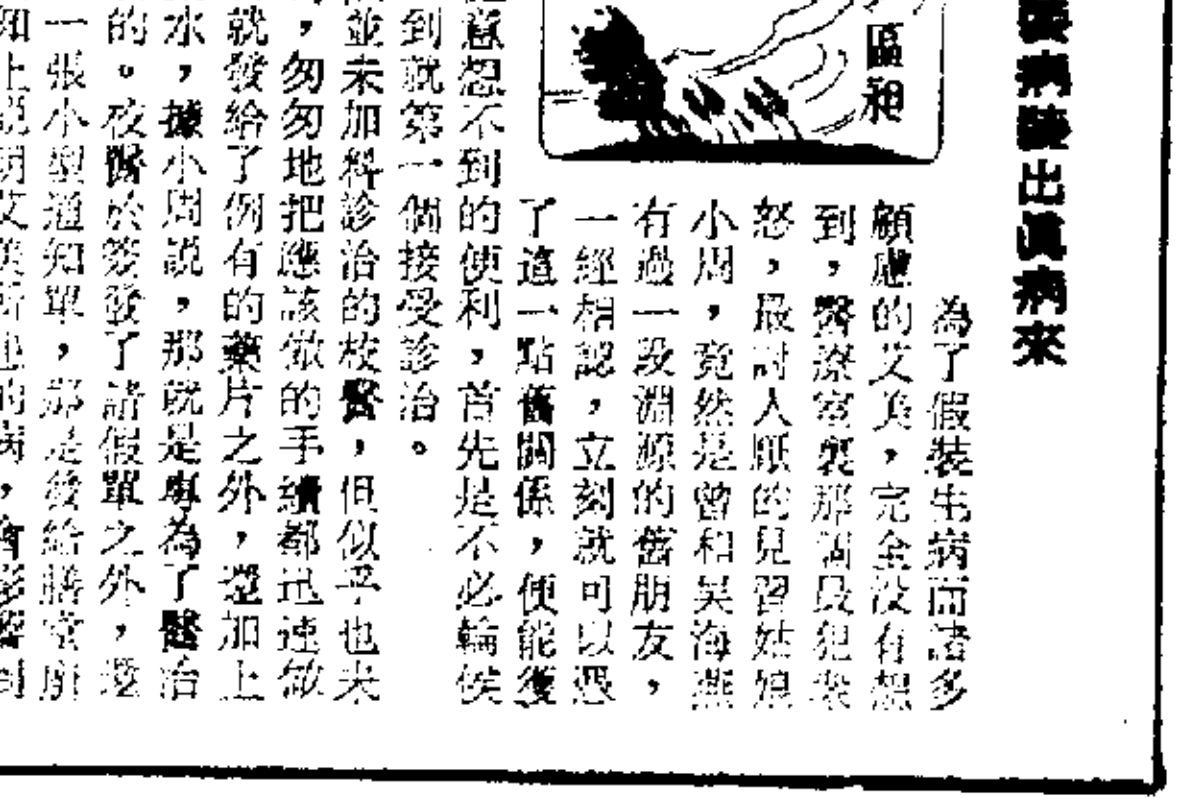 病裝出眞病來
區和
為了假裝生病而諸多
顧慮的艾美,完全没有想
到,醫療室裏那個最犯衆
怒,最討人厭的見習姑娘
小周,竟然是曾和吴海燕
有過一段淵源的舊朋友,
一經相認,立刻就可以恐
了這一點舊關係,便能獲
意想不到的便利,首先是不必輪候
到就第一個接受診治。
並未加料診治的校醫,但似乎也未
,匆匆地把應該做的手續都迅速做
就發給了例有的藥片之外,還加上
水,據小周説,那就是專為了醫治
的。校醫於簽發了請假單之外,還
一張小型通知單,那是後給膳堂
知上説明艾美所患的病,